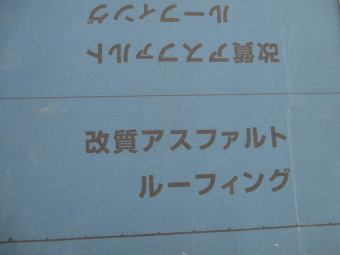 改質アスファルト
ルーフィング
改質アスファルト
ルーフィング